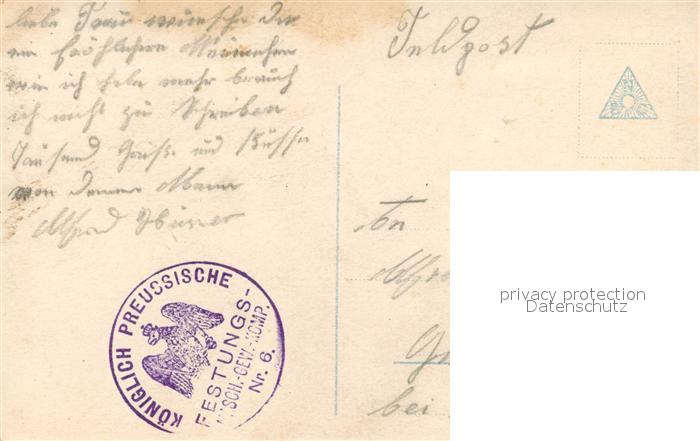 liebe Frau wünsche Dir
ein fröhlichere
wie ich habe mehr brauch
ich nicht zu Schreiben
Tausend Grüße und Küsse
von Deinem Mann
Alfred
Feldpost
An
bei
KÖNIGLICH PREUSSISCHE
FESTUNGS-
MASCH.-GEW.-KOMP.
Nr. 6.
privacy protection
Datenschutz